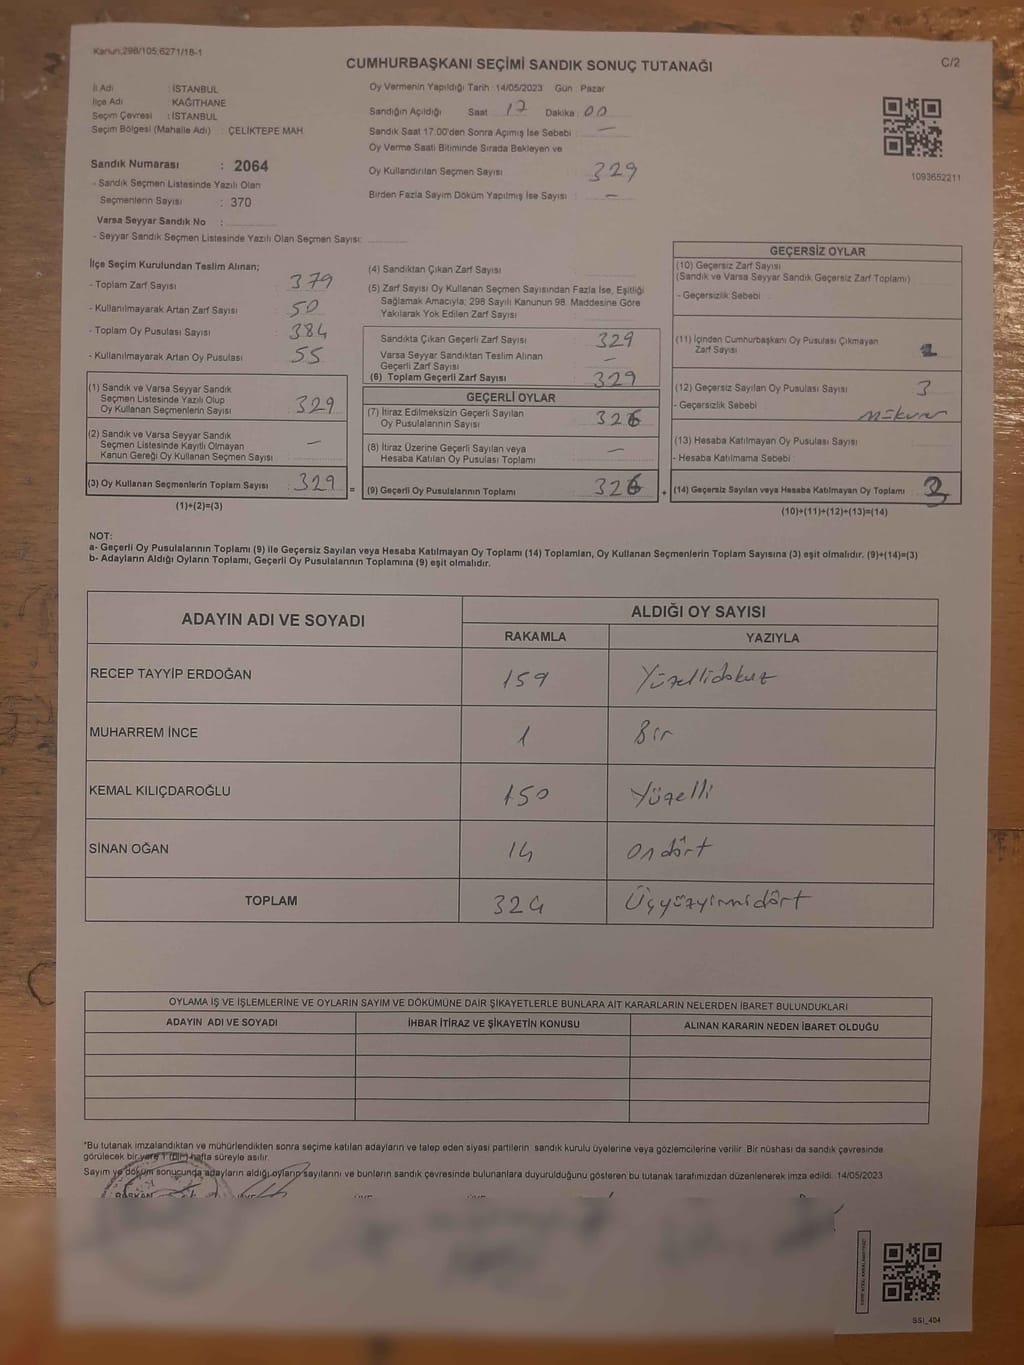 Kanun;298/105;6271/18-1
CUMHURBAŞKANI SEÇİMİ SANDIK SONUÇ TUTANAĞI
C/2
İl Adı : İSTANBUL
İlçe Adı : KAĞITHANE
Seçim Çevresi : İSTANBUL
Seçim Bölgesi (Mahalle Adı) : ÇELİKTEPE MAH
Sandık Numarası : 2064
- Sandık Seçmen Listesinde Yazılı Olan
Seçmenlerin Sayısı : 370
Varsa Seyyar Sandık No :
- Seyyar Sandık Seçmen Listesinde Yazılı Olan Seçmen Sayısı:
Oy Vermenin Yapıldığı Tarih : 14/05/2023 Gün : Pazar
Sandığın Açıldığı Saat 17 Dakika : 00
Sandık Saat 17.00'den Sonra Açımış İse Sebebi : —
Oy Verme Saati Bitiminde Sırada Bekleyen ve
Oy Kullandırılan Seçmen Sayısı : 329
Birden Fazla Sayım Döküm Yapılmış İse Sayısı : —
1093652211
İlçe Seçim Kurulundan Teslim Alınan;
- Toplam Zarf Sayısı : 379
- Kullanılmayarak Artan Zarf Sayısı : 50
- Toplam Oy Pusulası Sayısı : 384
- Kullanılmayarak Artan Oy Pusulası : 55
(1) Sandık ve Varsa Seyyar Sandık
Seçmen Listesinde Yazılı Olup
Oy Kullanan Seçmenlerin Sayısı : 329
(2) Sandık ve Varsa Seyyar Sandık
Seçmen Listesinde Kayıtlı Olmayan
Kanun Gereği Oy Kullanan Seçmen Sayısı : —
(3) Oy Kullanan Seçmenlerin Toplam Sayısı : 329 =
(1)+(2)=(3)
(4) Sandıktan Çıkan Zarf Sayısı :
(5) Zarf Sayısı Oy Kullanan Seçmen Sayısından Fazla İse, Eşitliği
Sağlamak Amacıyla; 298 Sayılı Kanunun 98. Maddesine Göre
Yakılarak Yok Edilen Zarf Sayısı :
Sandıkta Çıkan Geçerli Zarf Sayısı : 329
Varsa Seyyar Sandıktan Teslim Alınan
Geçerli Zarf Sayısı : —
(6) Toplam Geçerli Zarf Sayısı : 329
GEÇERLİ OYLAR
(7) İtiraz Edilmeksizin Geçerli Sayılan
Oy Pusulalarının Sayısı : 326
(8) İtiraz Üzerine Geçerli Sayılan veya
Hesaba Katılan Oy Pusulası Toplamı : —
(9) Geçerli Oy Pusulalarının Toplamı : 326 +
GEÇERSİZ OYLAR
(10) Geçersiz Zarf Sayısı
(Sandık ve Varsa Seyyar Sandık Geçersiz Zarf Toplamı) :
- Geçersizlik Sebebi :
(11) İçinden Cumhurbaşkanı Oy Pusulası Çıkmayan
Zarf Sayısı :
(12) Geçersiz Sayılan Oy Pusulası Sayısı : 3
- Geçersizlik Sebebi :
(13) Hesaba Katılmayan Oy Pusulası Sayısı :
- Hesaba Katılmama Sebebi :
(14) Geçersiz Sayılan veya Hesaba Katılmayan Oy Toplamı : 3
(10)+(11)+(12)+(13)=(14)
NOT:
a- Geçerli Oy Pusulalarının Toplamı (9) ile Geçersiz Sayılan veya Hesaba Katılmayan Oy Toplamı (14) Toplamları, Oy Kullanan Seçmenlerin Toplam Sayısına (3) eşit olmalıdır. (9)+(14)=(3)
b- Adayların Aldığı Oyların Toplamı, Geçerli Oy Pusulalarının Toplamına (9) eşit olmalıdır.
ADAYIN ADI VE SOYADI ALDIĞI OY SAYISI
RAKAMLA YAZIYLA
RECEP TAYYİP ERDOĞAN 159 Yüzellidokuz
MUHARREM İNCE 1 Bir
KEMAL KILIÇDAROĞLU 150 Yüzelli
SİNAN OĞAN 14 Ondört
TOPLAM 324 Üçyüzyirmidört
OYLAMA İŞ VE İŞLEMLERİNE VE OYLARIN SAYIM VE DÖKÜMÜNE DAİR ŞİKAYETLERLE BUNLARA AİT KARARLARIN NELERDEN İBARET BULUNDUKLARI
ADAYIN ADI VE SOYADI İHBAR İTİRAZ VE ŞİKAYETİN KONUSU ALINAN KARARIN NEDEN İBARET OLDUĞU
*Bu tutanak imzalandıktan ve mühürlendikten sonra seçime katılan adayların ve talep eden siyasi partilerin sandık kurulu üyelerine veya gözlemcilerine verilir. Bir nüshası da sandık çevresinde
görülecek bir yere 1 (bir) hafta süreyle asılır.
Sayım ve döküm sonucunda adayların aldığı oyların sayılarını ve bunların sandık çevresinde bulunanlara duyurulduğunu gösteren bu tutanak tarafımızdan düzenlenerek imza edildi. 14/05/2023
BAŞKAN
SSI_404